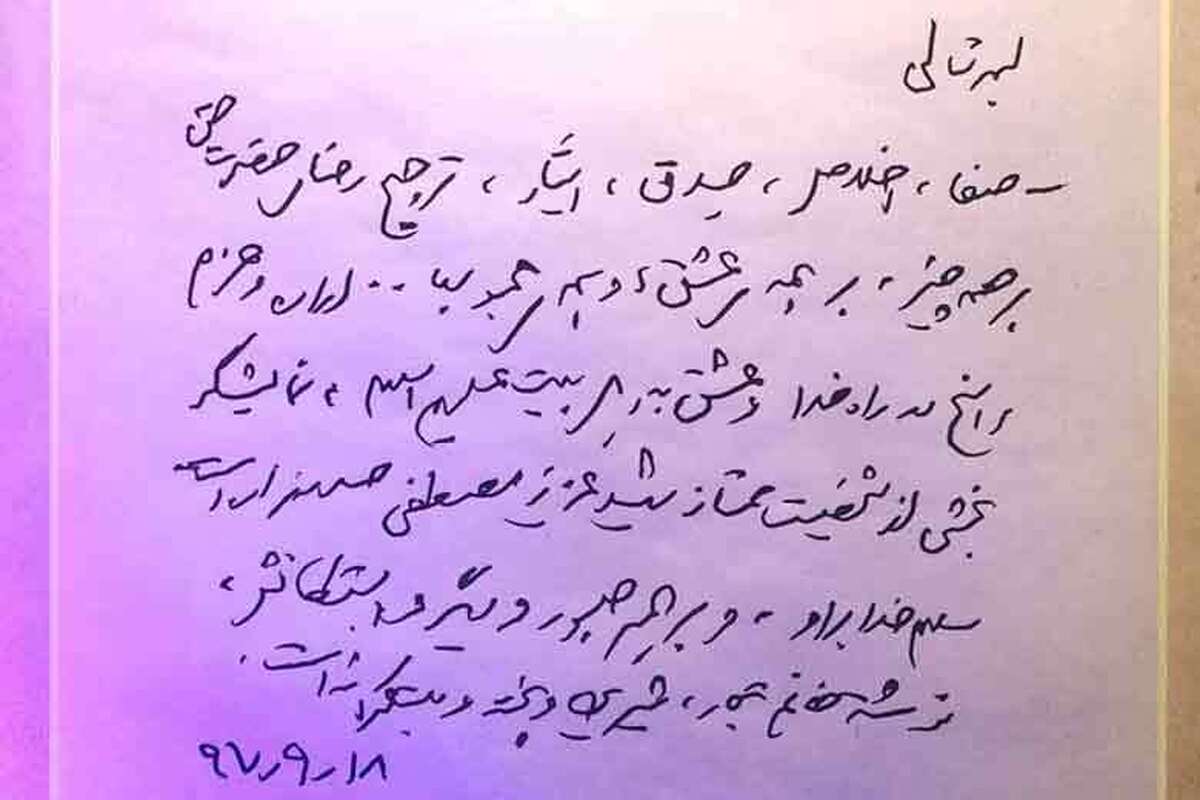 بسمه تعالی
ـ صفا، اخلاص، صدق، ایثار، ترجیح رضای حضرت حق
بر همه چیز، بر همه عشق‌ها و همه محبوبها .. ایمان و عزم
راسخ در راه خدا و عشق به اهل بیت علیهم السلام، نمایشگر
بخشی از شخصیت ممتاز شهید عزیز مصطفی صدرزاده است
سلام خدا بر او، و بر همسر صبور و دیگر وابستگانش،
نوشته خانم تجار، شیرین و پخته و مبتکرانه است.
۹۷/۹/۱۸